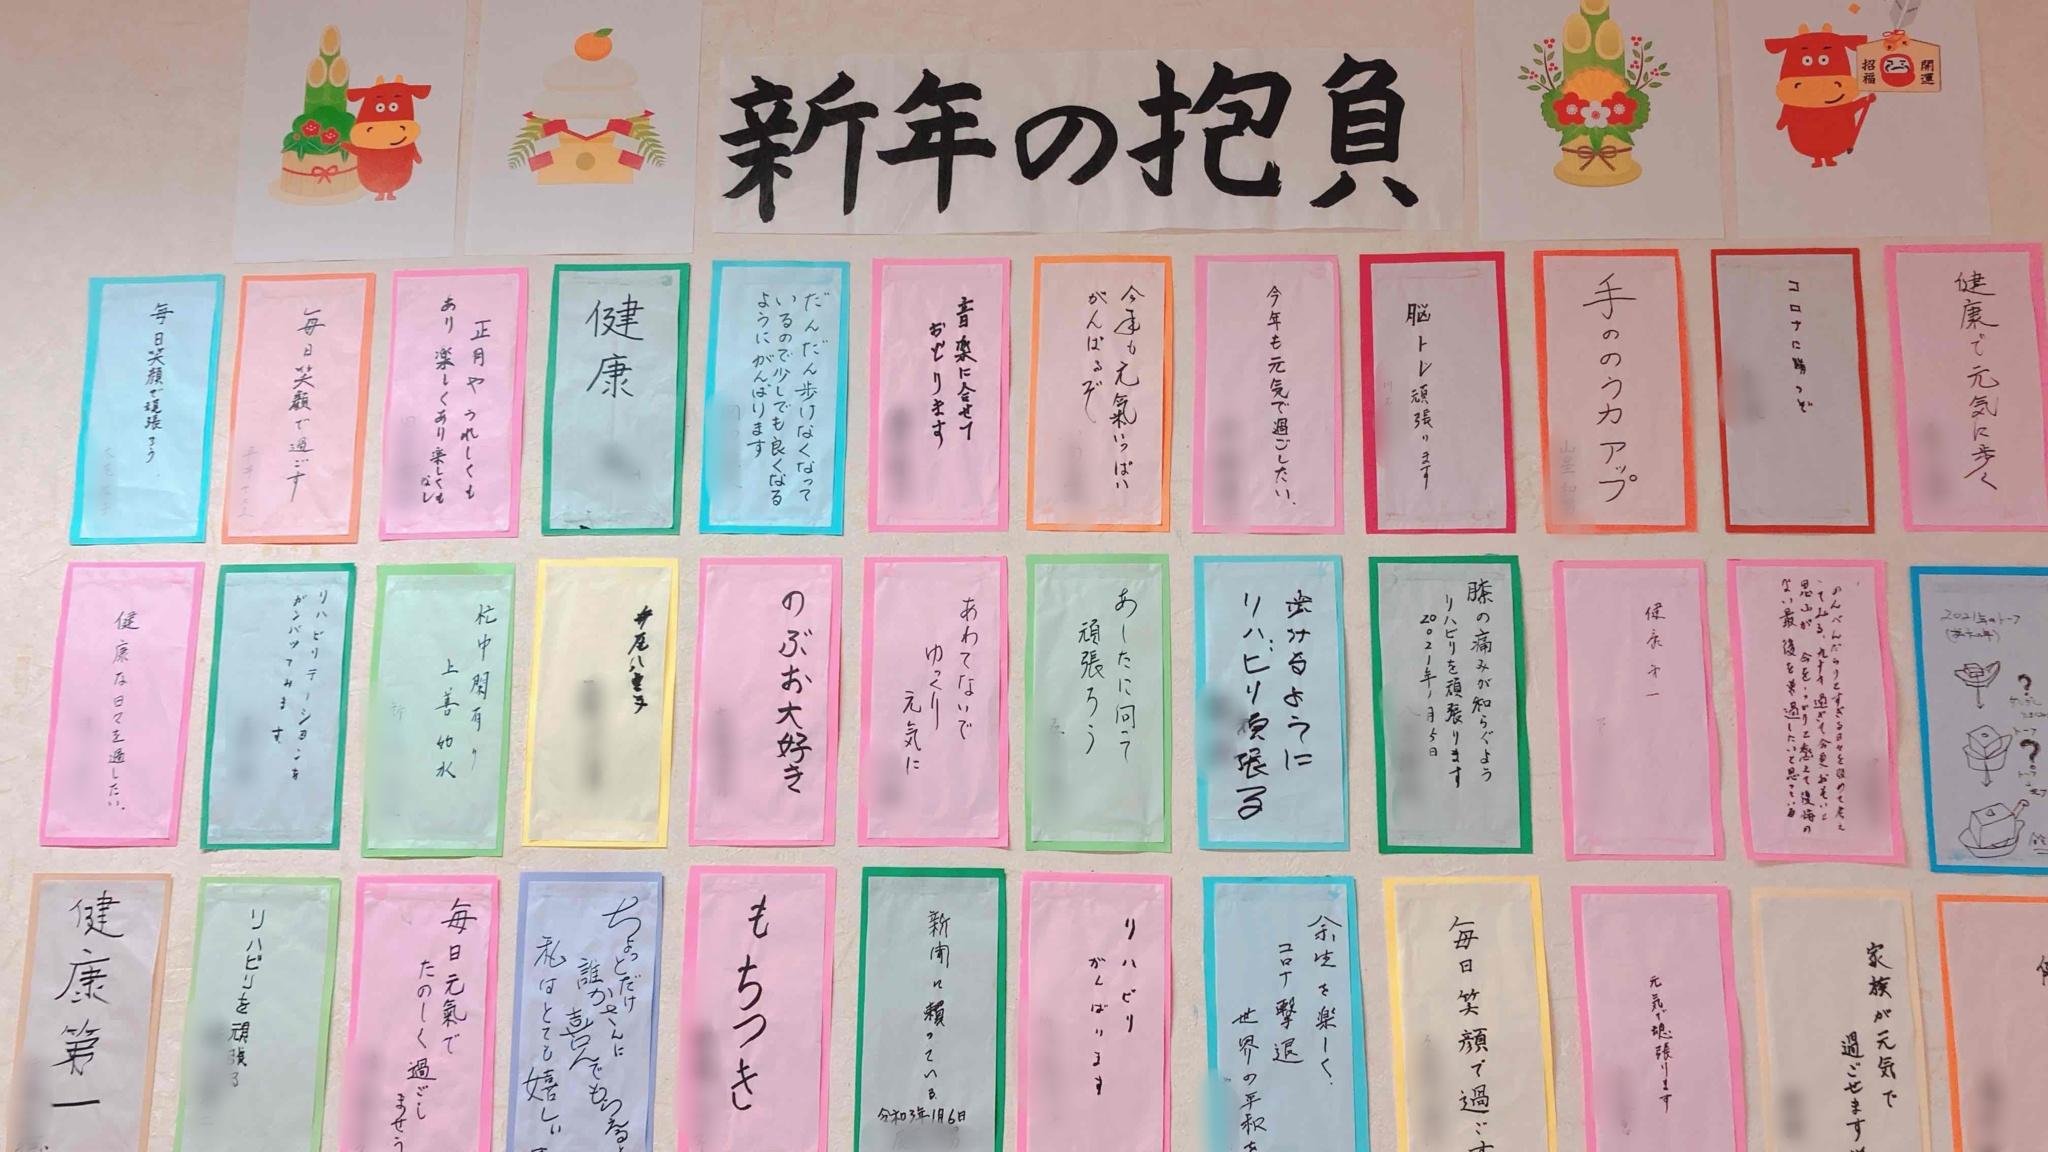 新年の抱負
招福
開運
毎日笑顔で頑張ろう
毎日笑顔で過ごす
正月や うれしくも
あり 楽しくあり 楽しくも
なし
健康
だんだん歩けなくなって
いるので少しでも良くなる
ようにがんばります
音楽に合せて
おどります
今年も元氣いっぱい
がんばるぞ
今年も元気で過ごしたい、
脳トレ頑張ります
手ののう力アップ
コロナに勝つぞ
健康で元気に歩く
健康な日々を過したい、
リハビリテーションを
ガンバッてみます
忙中閑有り
上善
のぶお大好き
あわてないで
ゆっくり
元気に
あしたに向って
頑張ろう
歩けるように
リハビリ頑張る
膝の痛みが和らぐよう
リハビリを頑張ります
2021年1月5日
健康才一
健康第一
リハビリを頑張る
毎日元氣で
たのしく過ごし
ませう
ちょっとだけ
誰かさんに
喜んでもらえると
私はとても嬉しい
もちつき
新聞に載っている
令和3年1月6日
リハビリ
がんばります
余生を楽しく、
コロナ撃退
世界の平和を
毎日笑顔で過ごす
元気で頑張ります
家族が元気で
過ごせます様